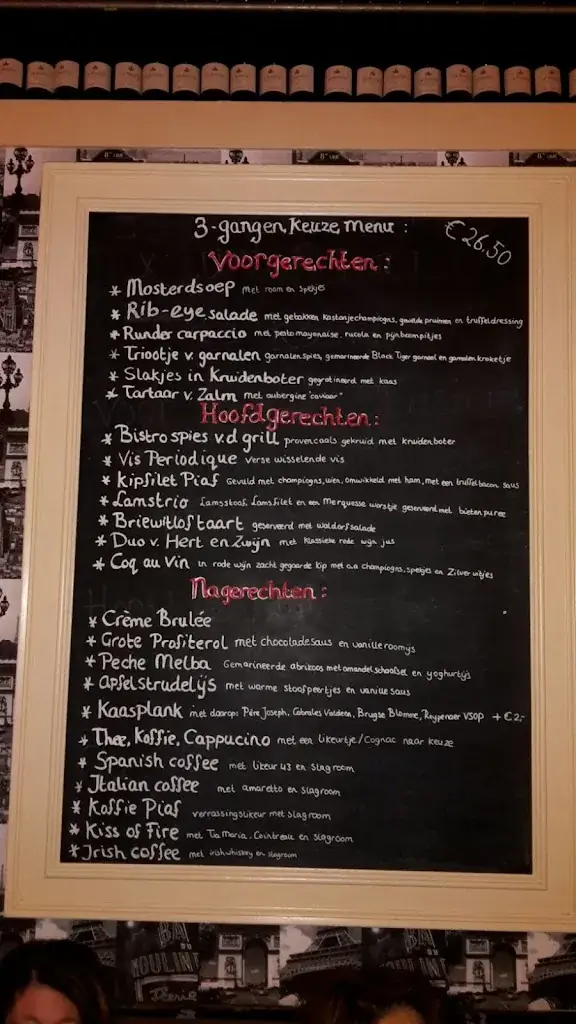 3-gangen keuze menu :
€ 26,50
Voorgerechten :
* Mosterdsoep met room en spekjes
* Rib-eye salade met gebakken kastanjechampigns, gewelde pruimen en truffeldressing
* Runder carpaccio met pesto mayonaise, rucola en pijnboompitjes
* Triootje v. garnalen garnalenspies, gemarineerde Black Tiger garnaal en garnalen kroketje
* Slakjes in Kruidenboter gegratineerd met kaas
* Tartaar v. Zalm met aubergine "caviaar"
Hoofdgerechten :
* Bistro spies v.d grill provencaals gekruid met kruidenboter
* Vis Periodique verse wisselende vis
* Kipfilet Piaf Gevuld met champigns, uien, omwikkeld met ham, met een truffel bacon saus
* Lamstrio Lamsstoof, Lamsfilet en een Merquesse worstje geserveerd met bietenpuree
* Briewitlof taart geserveerd met waldorfsalade
* Duo v. Hert en Zwijn met klassieke rode wijn jus
* Coq au Vin in rode wijn zacht gegaarde kip met o.a champigns, spekjes en Zilver uitjes
Nagerechten :
* Crème Brulée
* Grote Profiterol met chocoladesaus en vanilleroomijs
* Peche Melba Gemarineerde abrikoos met amandelschaafsel en yoghurtijs
* Apfelstrudelijs met warme stoofpeertjes en vanille saus
* Kaasplank met daarop: Père Joseph, Cabrales Valdeon, Brugse Blomme, Reypenaer VSOP + € 2,-
* Thee, Koffie, Cappucino met een likeurtje/Cognac naar keuze
* Spanish coffee met likeur 43 en slagroom
* Italian coffee met amaretto en slagroom
* Koffie Piaf verrassingslikeur met slagroom
* Kiss of Fire met Tia Maria, Cointreau en slagroom
* Irish coffee met irish whiskey en slagroom
BA
MOULIN